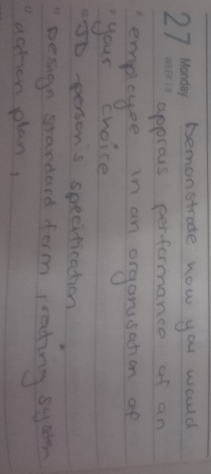 27 Monday
WEEK 18
Demonstrate how you would
apprais performance of an
employee in an organisation of
your choice
" JD person's specification
" Design standard form, rating system
" action plan,